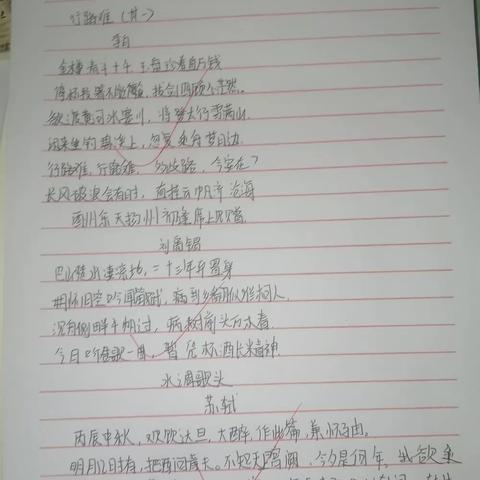 行路难（其一）
李白
金樽清酒斗十千 玉盘珍羞直万钱
停杯投箸不能食，拔剑四顾心茫然。
欲渡黄河冰塞川，将登太行雪满山
闲来垂钓碧溪上，忽复乘舟梦日边
行路难，行路难，多歧路，今安在？
长风破浪会有时，直挂云帆济沧海
酬州乐天扬州初逢席上见赠
刘禹锡
巴山楚水凄凉地，二十三年弃置身
怀旧空吟闻笛赋，到乡翻似烂柯人
沉舟侧畔千帆过，病树前头万木春
今日听君歌一曲，暂凭杯酒长精神
水调歌头
苏轼
丙辰中秋，欢饮达旦，大醉，作此篇，兼怀子由。
明月几时有，把酒问青天。不知天上宫阙，今夕是何年，我欲乘